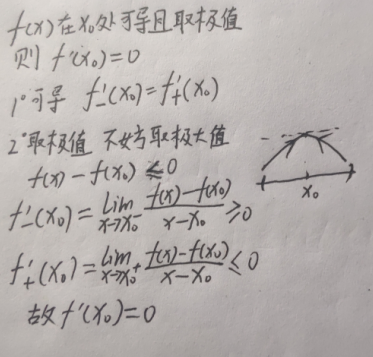 f(x)在x₀处可导且取极值
则 f'(x₀)=0
1°可导 f'₋(x₀)=f'₊(x₀)
2°取极值 不妨取极大值
f(x)-f(x₀)≤0
f'₋(x₀)=lim_{x→x₀⁻} (f(x)-f(x₀))/(x-x₀) ≥0
x₀
f'₊(x₀)=lim_{x→x₀⁺} (f(x)-f(x₀))/(x-x₀) ≤0
故 f'(x₀)=0